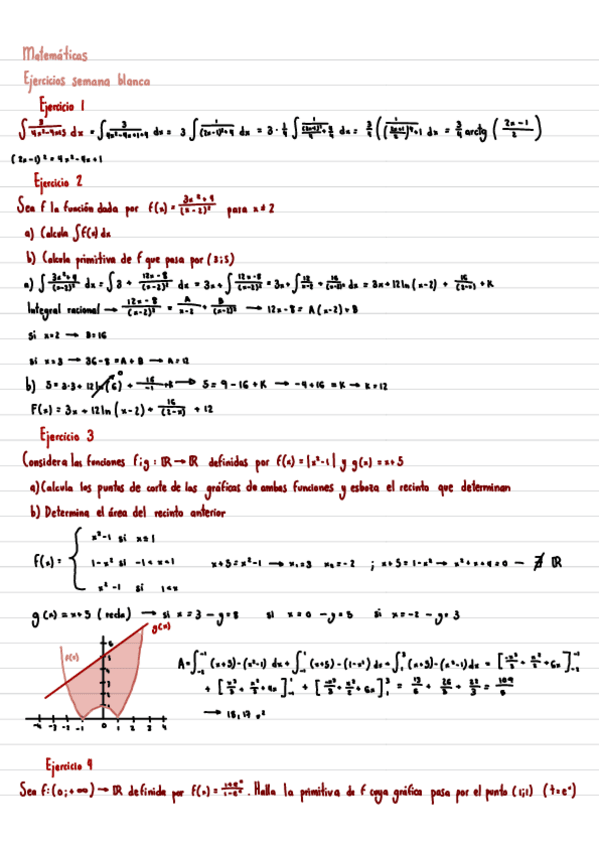 Matemáticas
Ejercicios semana blanca
Ejercicio 1
∫ 3/(4x²-4x+5) dx = ∫ 3/(4x²-4x+1+4) dx = 3 ∫ 1/((2x-1)²+4) dx = 3 · 1/4 ∫ dx = 3/4 dx = 3/4 arctg ( (2x-1)/2 )
(2x-1)² = 4x²-4x+1
Ejercicio 2
Sea f la función dada por f(x) = (3x²+4)/(x-2)² para x≠2
a) Calcula ∫f(x)dx
b) Calcula primitiva de f que pasa por (3;5)
a) ∫ (3x²+4)/(x-2)² dx = ∫ 3 + (12x-8)/(x-2)² dx = 3x + ∫ (12x-8)/(x-2)² = 3x + ∫ 12/(x-2) + 16/(x-2)² dx = 3x + 12ln(x-2) + 16/(2-x) + K
Integral racional → (12x-8)/(x-2)² = A/(x-2) + B/(x-2)² → 12x-8 = A(x-2)+B
si x=2 → B=16
si x=3 → 36-8 = A+B → A=12
b) 5 = 3·3 + 12 + 16/-1 + K → 5 = 9-16+K → -4+16 = K → K=12
F(x) = 3x + 12ln(x-2) + 16/(2-x) + 12
Ejercicio 3
Considera las funciones f;g: ℝ→ℝ definidas por f(x) = |x²-1| y g(x) = x+5
a) Calcula los puntos de corte de las gráficas de ambas funciones y esboza el recinto que determinan
b) Determina el área del recinto anterior
x²-1 si x≤1
f(x) = { 1-x² si -1<x<1 x+5=x²-1 → x₁=3 x₂=-2 ; x+5=1-x² → x²+x+4=0 — ∄ ℝ
x²-1 si 1<x
g(x) = x+5 (recta) → si x=3 - y=8 si x=0 - y=5 si x=-2 - y=3
g(x)
f(x)
A = ∫₋₂⁻¹ (x+5)-(x²-1) dx + ∫₋₁¹ (x+5)-(1-x²) dx + ∫₁³ (x+5)-(x²-1) dx = [-x³/3 + x²/2 + 6x]₋₂⁻¹
+ [x³/3 + x²/2 + 4x]₋₁¹ + [-x³/3 + x²/2 + 6x]₁³ = 13/6 + 26/3 + 22/3 = 109/6
→ 18,17 u²
-4 -3 -2 -1 0 1 2 3 4
Ejercicio 4
Sea f:(0;+∞)→ℝ definida por f(x) = (1+eˣ)/(1-eˣ). Halla la primitiva de f cuya gráfica pasa por el punto (1;1) (t=eˣ)